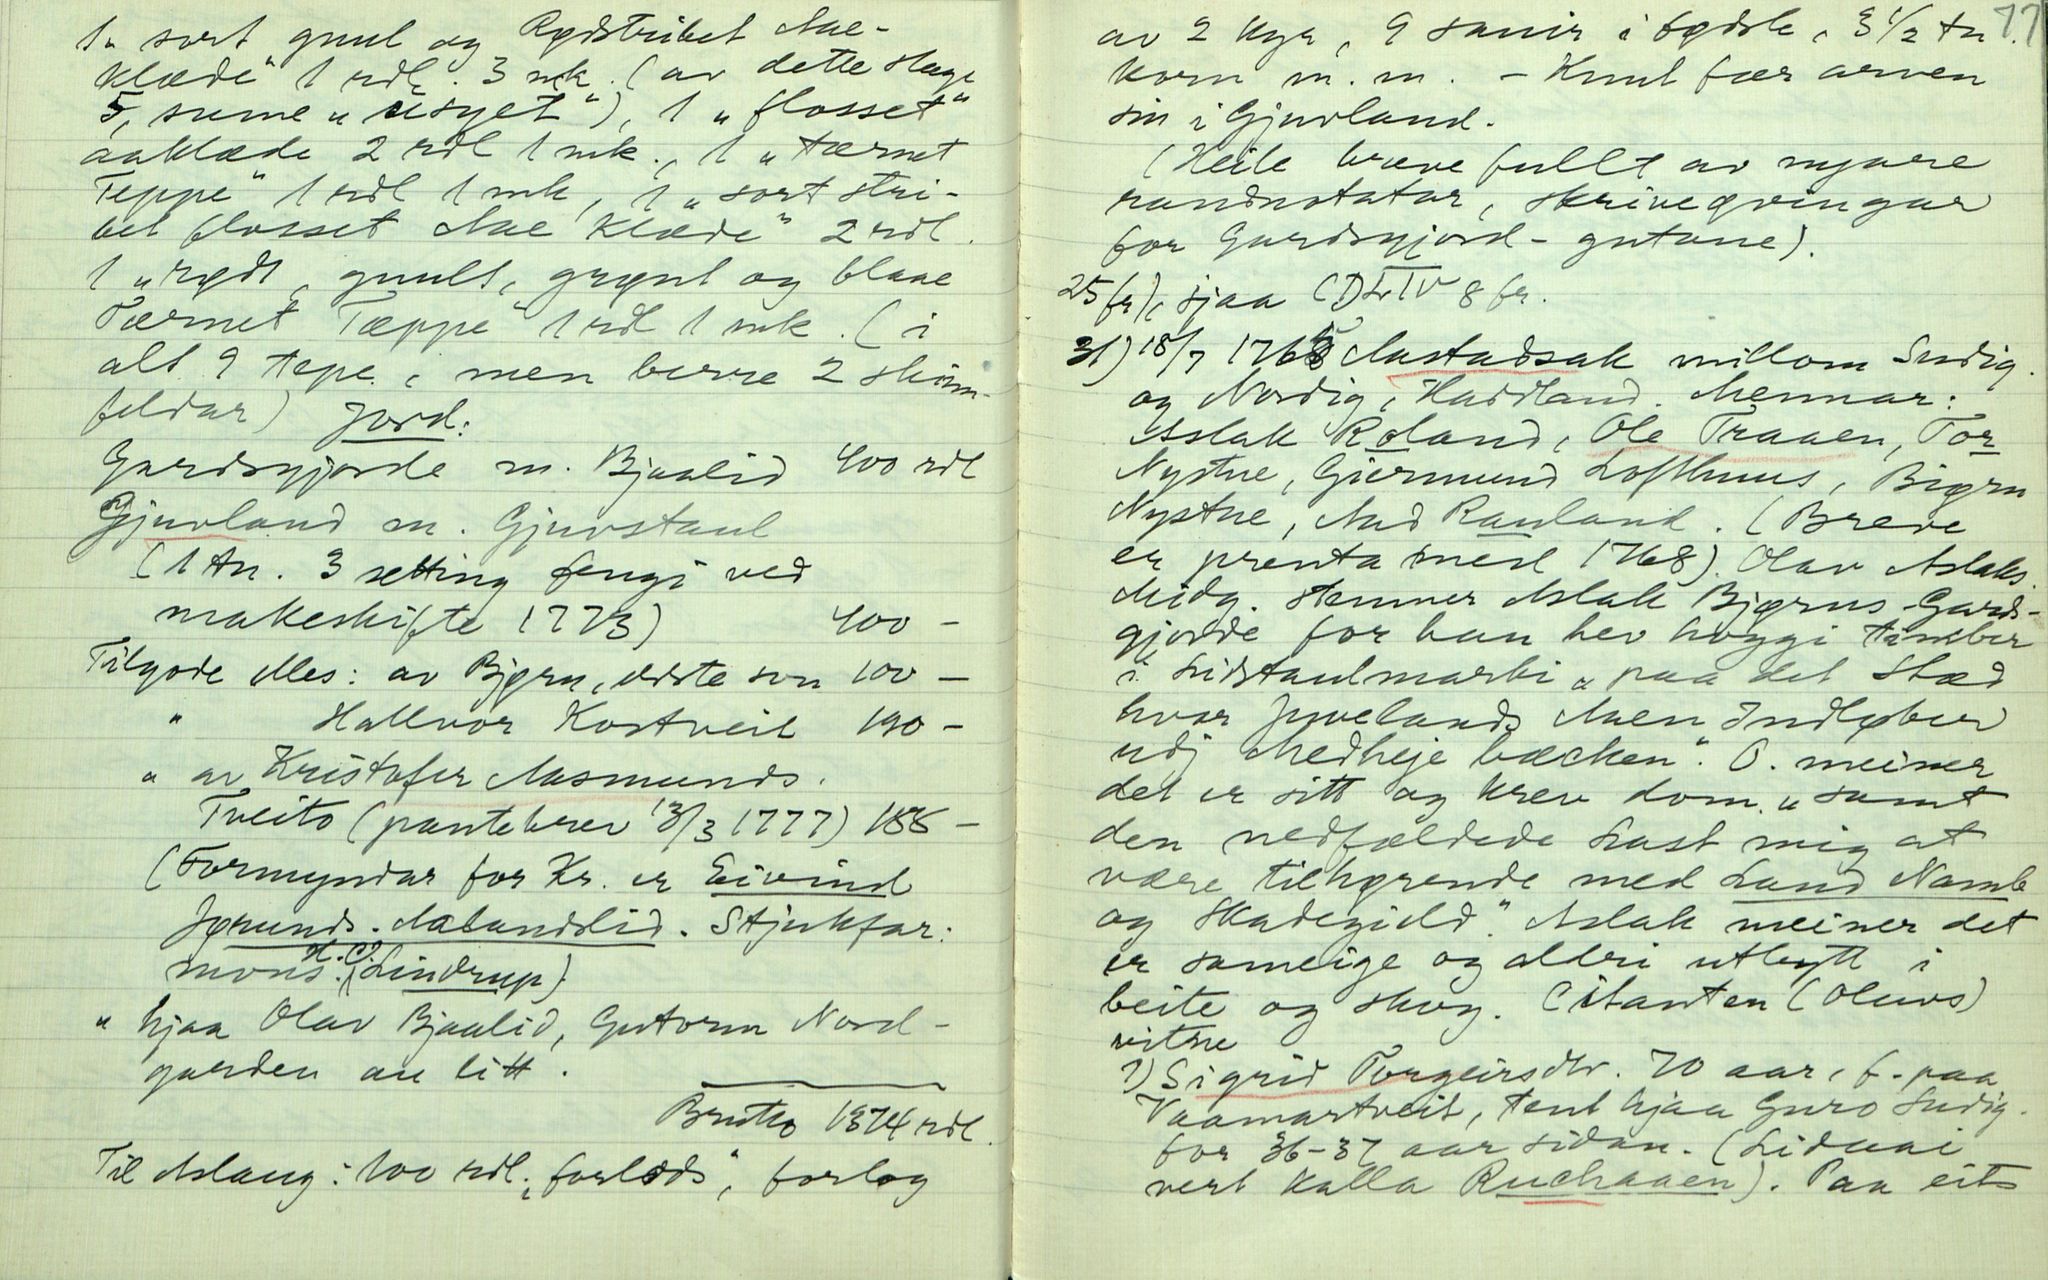 1 „ sort guul og Rødstribet Aae-
klæde“ 1 rdl. 3 mk. (av dette slage
5, sume „usyet“), 1 „flosset“
aaklæde 2 rdl 1 mk., 1 „tærnet
Teppe“ 1 rdl 1 mk, 1 „sort stri-
bet flosset Aae Klæde“ 2 rdl.
1 „rødt, guult, grønt og blaae
Tærnet Tæppe“ 1 rdl 1 mk. (i
alt 9 tepe, men berre 2 skinn-
feldar) Jord:
Gardsgjorde m. Bjaalid 400 rdl
Gjuvland m. Gjuvstaul
(1 tn. 3 setting fengi ved
makeskifte 1773) 400 –
Tilgode elles: av Bjørn, eldste son 100 –
„ Hallvor Kostveit 190 –
„ av Kristofer Aasmunds.
Tveito (pantebrev 13/3 1777) 188 –
(Formyndar for Kr. er Eivind
Jørunds. Aabandslid. Stjukfar:
mons. H. C. (Lindrup)
„ hjaa Olav Bjaalid, Gutorm Nord-
garden au litt.
Brutto 1374 rdl.
Til Aslaug: 100 rdl. „forlods“, forlog
77
av 2 kyr, 9 sauir i fødsle, 3 1/2 tn.
korn m. m. – Knut fær arven
sin i Gjuvland.
(Heile breve fullt av nyare
randnotatar, skriveøvingar
for Gardsgjord-gutane).
25 fr), sjaa CDLIV 8 fr.
31) 18/7 1768 Aastadsak millom Sudig.
og Nordig, Haddland. Mennar:
Aslak Roland, Ole Traaen, Tor
Nystue, Giermund Lofthuus, Biørn
Nystue, Aad Rauland. (Breve
er prenta med 1768). Olav Aslaks.
Midg. stemner Aslak Bjørns. Gards-
gjorde for han hev hoggi timber
i Lidstaulmarki „paa det Stæd
hvor Juvelands Aaen Indløber
udj Medheje bæcken“. O. meiner
det er sitt og krev dom „samt
den nedfældede Last mig at
være tilhørende med Land Namb
og Skadegield“. Aslak meiner det
er sameige og aldri utbytt i
beite og skog. Citanten (Olavs)
vitne
1) Sigrid Torgeirsdtr. 70 aar, f. paa
Vaamartveit, tent hjaa Guro Sudig.
for 36-37 aar sidan. (Lidaai
vert kalla Ruchaaen). Paa eit